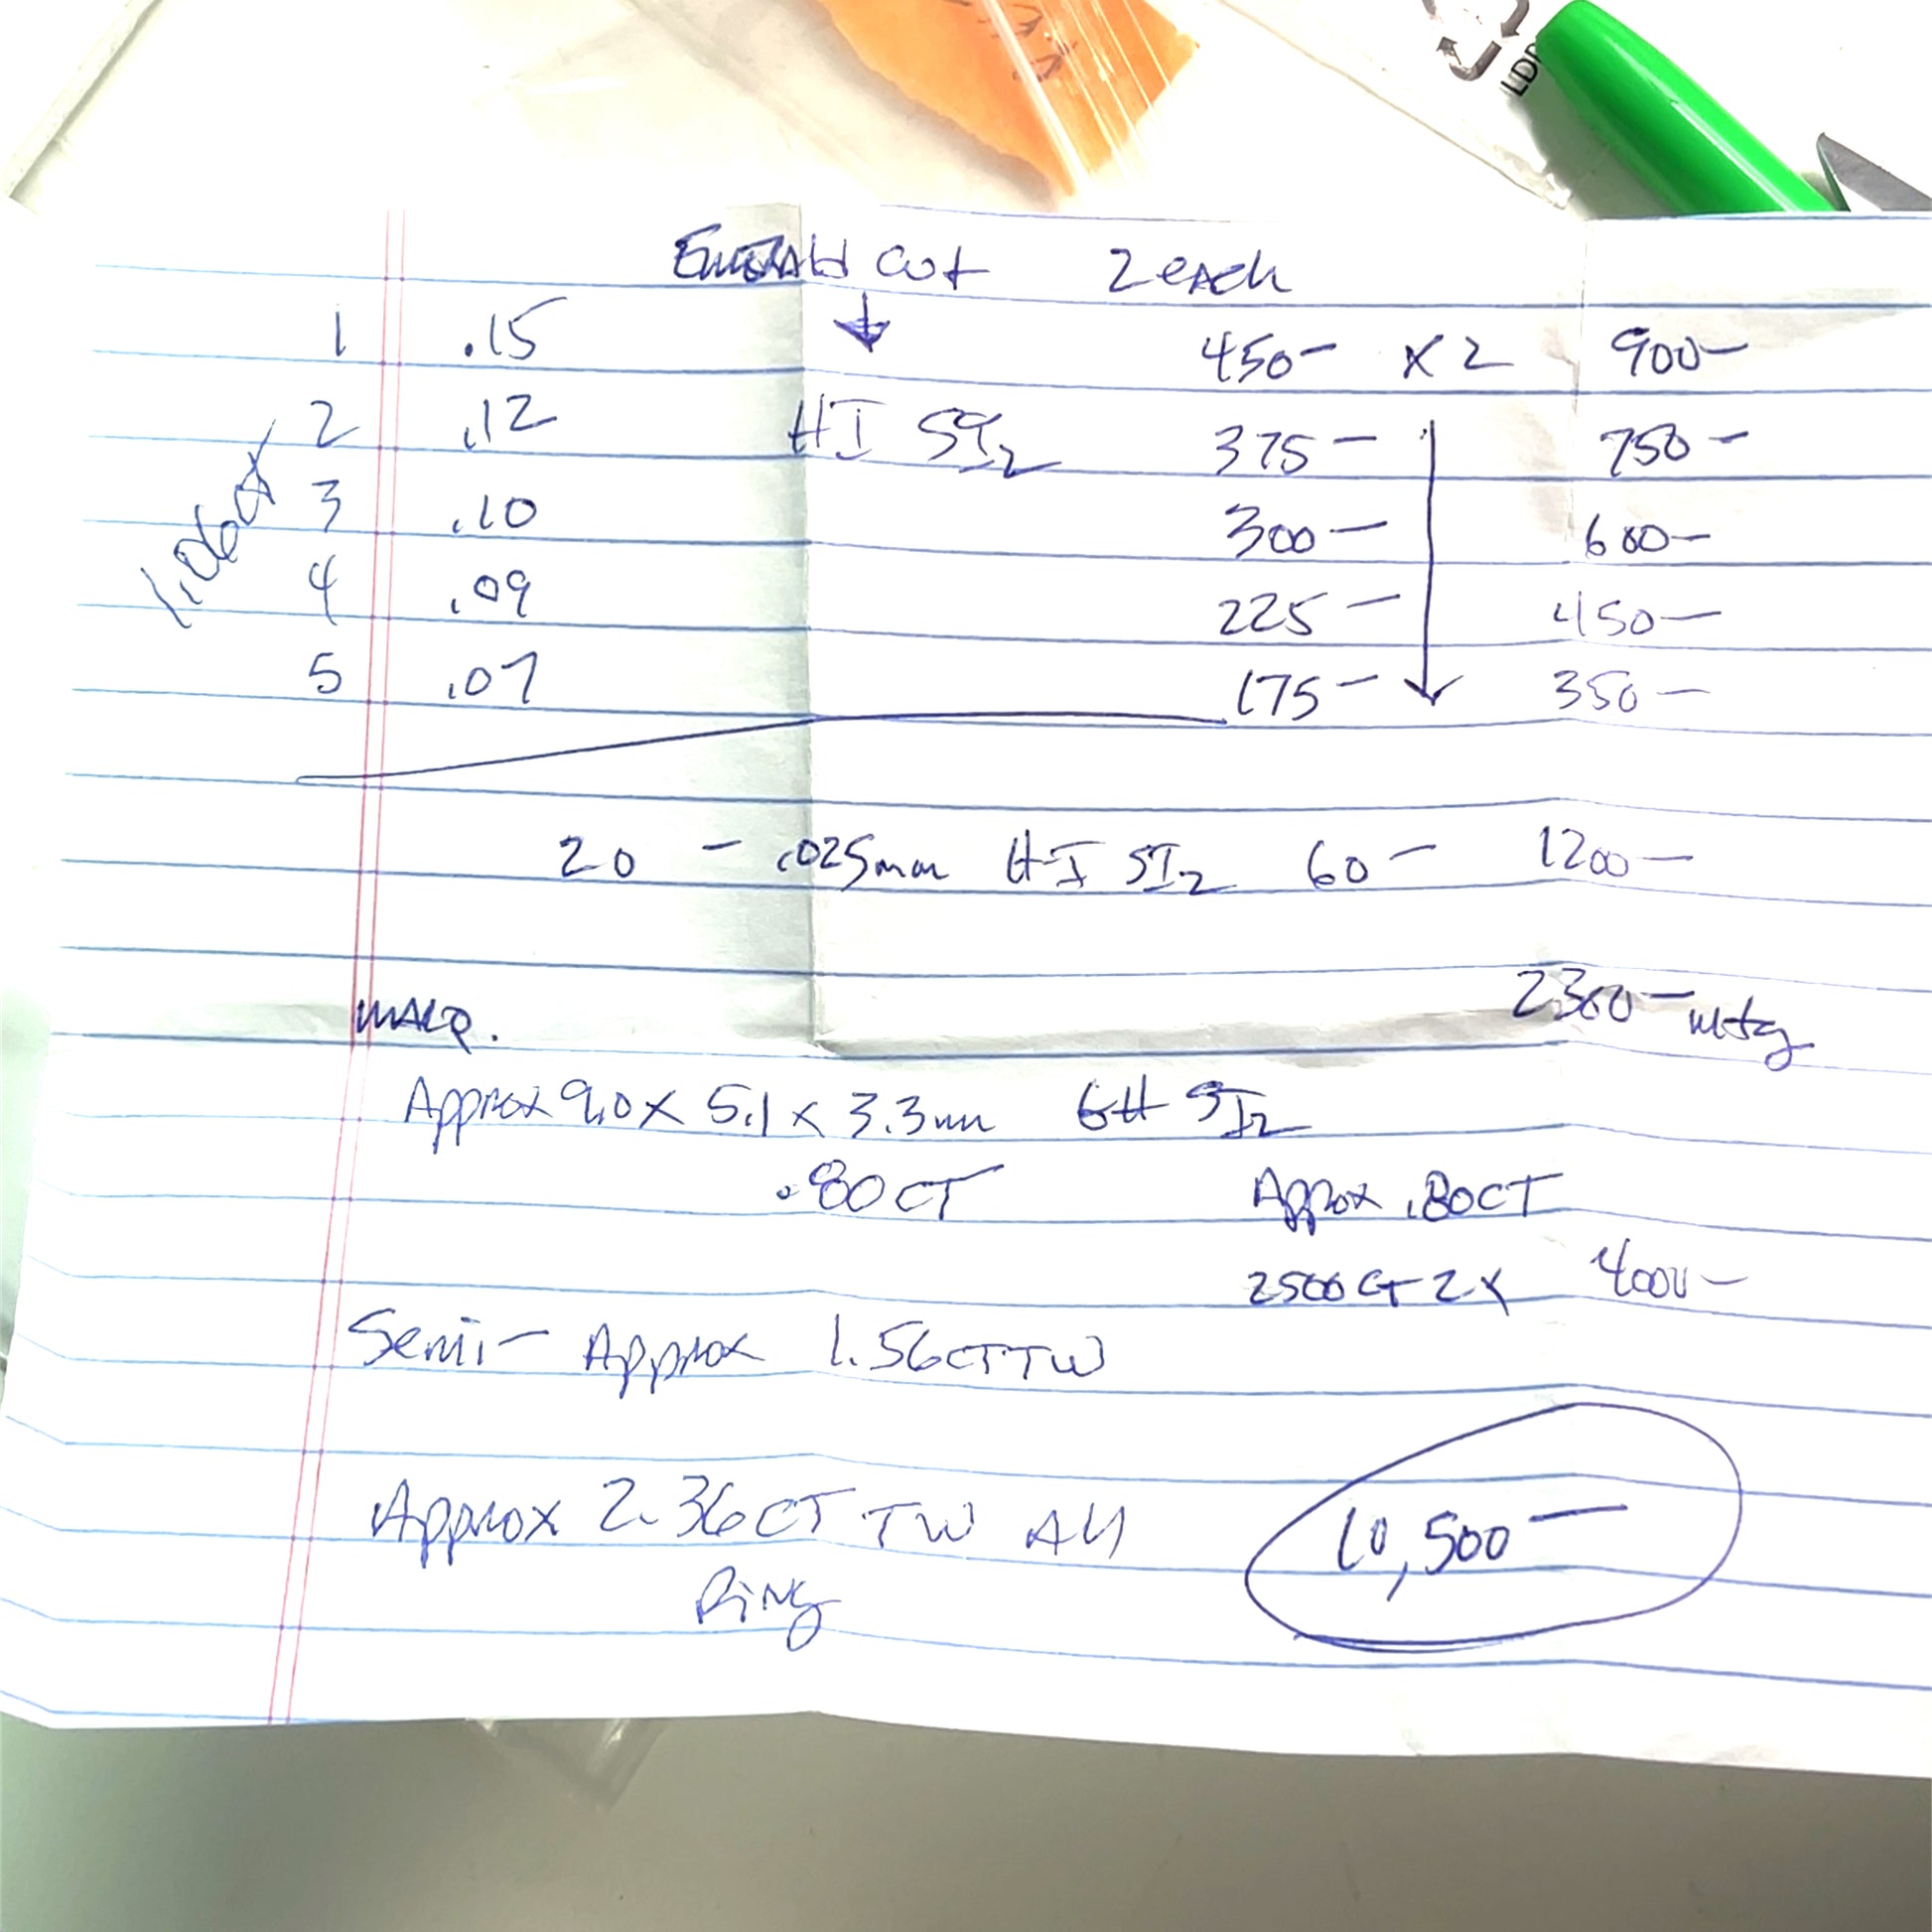 LDP
Emerald cut 2 each
1 .15 450- x 2 900-
2 .12 HI SI2 375- 750-
1.06ct
3 .10 300- 600-
4 .09 225- 450-
5 .07 175- 350-
20 - .025mm HI SI2 60- 1200-
2300- mtg
MARQ.
Approx 9.0 x 5.1 x 3.3mm GH SI2
.80CT Approx .80CT
2500 CT 2x 4000-
Semi- Approx 1.56CTTW
Approx 2.36CT TW All 10,500-
Ring